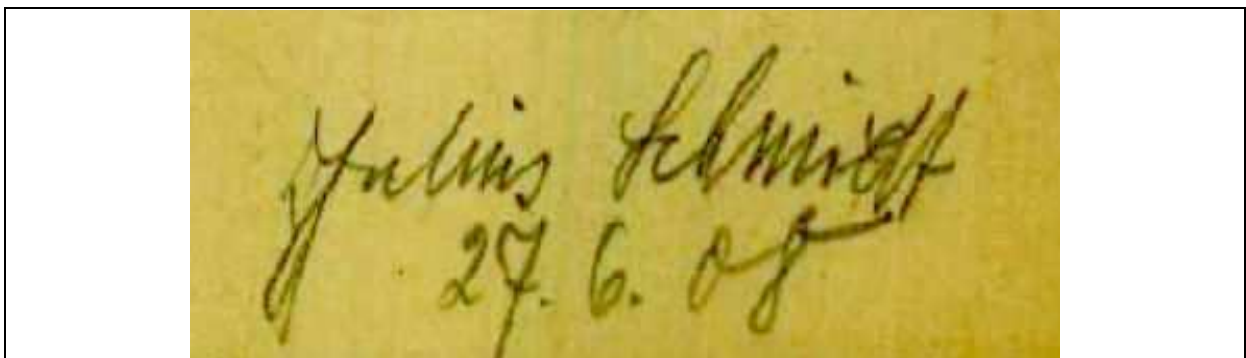 Julius Schmidt
27. 6. 08